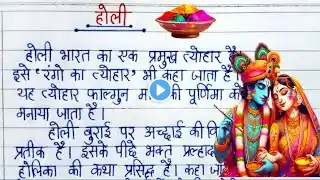 होली
होली भारत का एक प्रमुख त्योहार है
इसे 'रंगो का त्योहार' भी कहा जाता है
यह त्योहार फाल्गुन की पूर्णिमा
मनाया जाता है।
होली बुराई पर अच्छाई की
प्रतीक है। इसके पीछे भक्त प्रल्हाद
होलिका की कथा प्रसिद्ध है। कहा